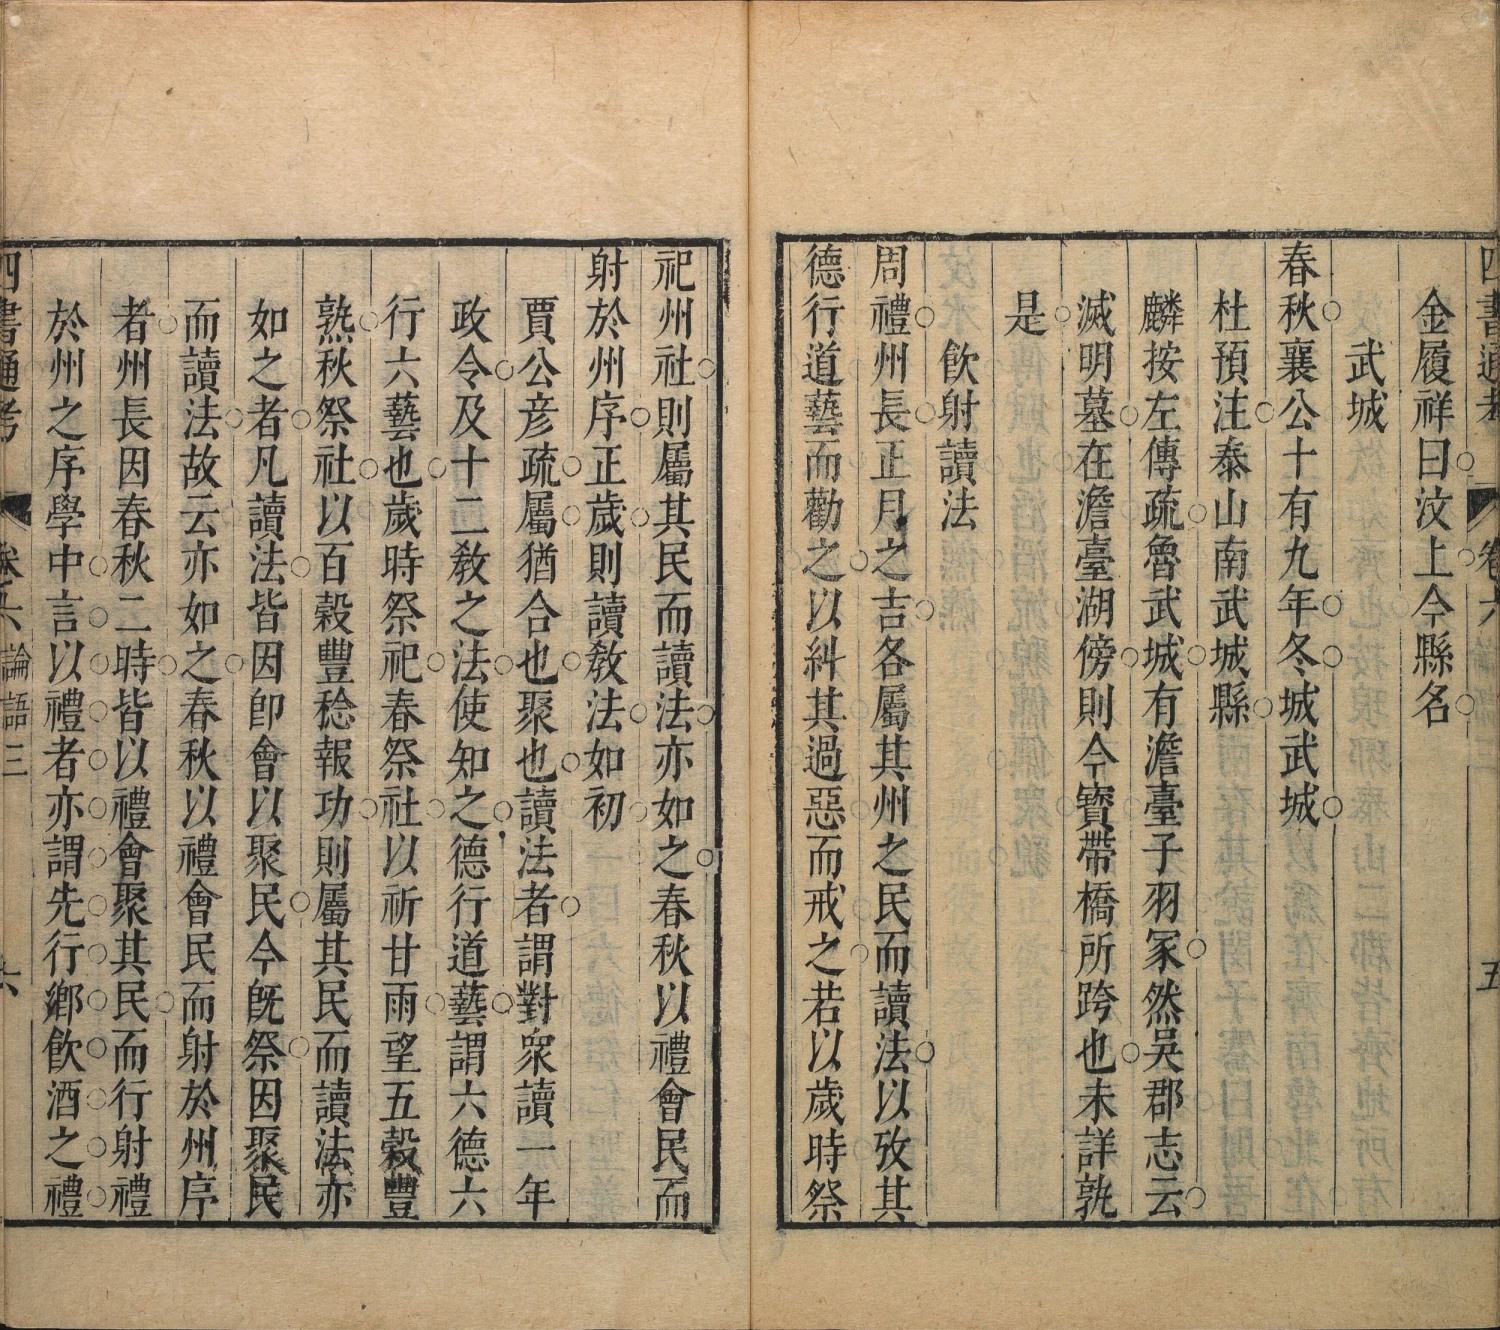 四書通考 卷六 論語三 五
金履祥曰汶上今縣名
武城
春秋襄公十有九年冬城武城
杜預注泰山南武城縣
麟按左傳疏魯武城有澹臺子羽冢然吳郡志云
滅明墓在澹臺湖傍則今寶帶橋所跨也未詳孰
是
飲射讀法
周禮州長正月之吉各屬其州之民而讀法以攷其
德行道藝而勸之以糾其過惡而戒之若以歲時祭
祀州社則屬其民而讀法亦如之春秋以禮會民而
射於州序正歲則讀敎法如初
賈公彥疏屬猶合也聚也讀法者謂對衆讀一年
政令及十二敎之法使知之德行道藝謂六德六
行六藝也歲時祭祀春祭社以祈甘雨望五穀豐
熟秋祭社以百穀豐稔報功則屬其民而讀法亦
如之者凡讀法皆因卽會以聚民今旣祭因聚民
而讀法故云亦如之春秋以禮會民而射於州序
者州長因春秋二時皆以禮會聚其民而行射禮
於州之序學中言以禮者亦謂先行鄉飲酒之禮
四書通考 卷六 論語三 六